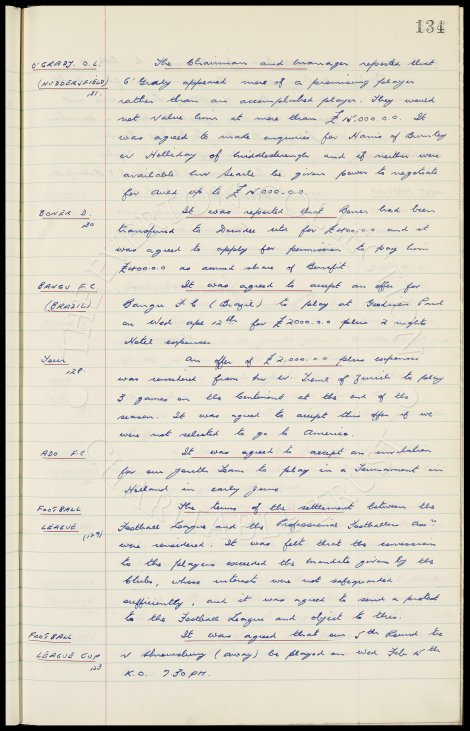 134
O'GRADY. O.L. The Chairman and Manager reported that
(HUDDERSFIELD) O'Grady appeared more of a promising player
131. rather than an accomplished player. They would
not value him at more than £ ,000.0.0. It
was agreed to make enquiries for Harris of Burnley
or Holliday of Middlesbrough and if neither were
available Mr Searle be given power to negotiate
for and up to £ ,000.0.0.
BONER D. It was reported that Boner had been
130 transferred to Dundee Utd for £ 0.0 and it
was agreed to apply for permission to pay him
£ 0.0 as accrued share of Benefit
BANGU F.C It was agreed to accept an offer for
(BRAZIL) Bangu F.C (Brazil) to play at Goodison Park
on Wed Apr 12th for £2000.0.0 plus 2 nights
Hotel expenses.
TOUR An offer of £2.000.0.0 plus expenses
128. was considered from Mr W. of Zurich to play
3 games on the Continent at the end of the
season. It was agreed to accept this offer if we
were not selected to go to America.
ADO F.C It was agreed to accept an invitation
for our Youth Team to play in a Tournament in
Holland in early June.
FOOTBALL The terms of the settlement between the
LEAGUE Football League and the Professional Footballers Assn
(129) were considered. It was felt that the concession
to the players exceeded the mandate given by the
Clubs, whose interest were not safeguarded
sufficiently, and it was agreed to send a protest
to the Football League and object to this.
FOOTBALL It was agreed that our 5th Round tie
LEAGUE CUP v Shrewsbury (away) be played on Wed Feb th
123 K.O. 7.30 PM.